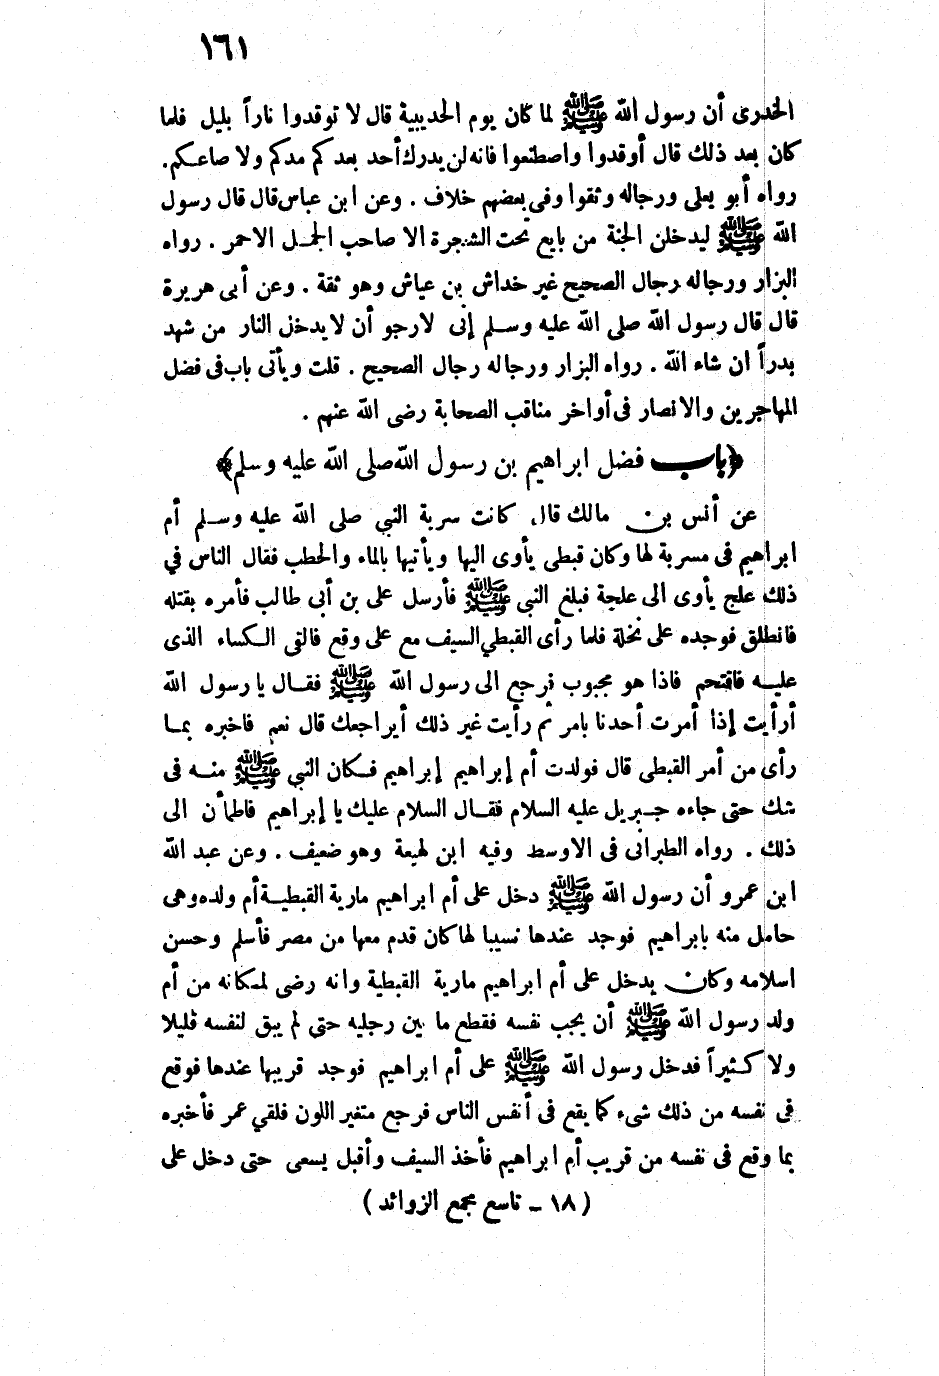 ١٦١
الخدرى أن رسول الله ﷺ لما كان يوم الحديبية قال لا توقدوا ناراً بليل فلما
كان بعد ذلك قال أوقدوا واصطنعوا فانه لن يدرك أحد بعدكم مدكم ولا صاعكم.
رواه أبو يعلى ورجاله وثقوا وفى بعضهم خلاف . وعن ابن عباس قال قال رسول
الله ﷺ ليدخلن الجنة من بايع تحت الشجرة الا صاحب الجمل الاحمر . رواه
البزار ورجاله رجال الصحيح غير خداش بن عياش وهو ثقة . وعن أبى هريرة
قال قال رسول الله صلى الله عليه وسلم إنى لارجو أن لا يدخل النار من شهد
بدراً ان شاء الله . رواه البزار ورجاله رجال الصحيح . قلت ويأتى باب فى فضل
المهاجرين والانصار فى أواخر مناقب الصحابة رضى الله عنهم .
﴿باب فضل ابراهيم بن رسول الله صلى الله عليه وسلم﴾
عن أنس بن مالك قال كانت سرية النبي صلى الله عليه وسلم أم
ابراهيم فى مسربة لها وكان قبطى يأوى اليها ويأتيها بالماء والحطب فقال الناس في
ذلك علج يأوى الى علجة فبلغ النبى ﷺ فأرسل على بن أبى طالب فأمره بقتله
فانطلق فوجده على نخلة فلما رأى القبطي السيف مع على وقع فالقى الكساء الذى
عليه فاقتحم فاذا هو مجبوب فرجع الى رسول الله ﷺ فقال يا رسول الله
أرأيت إذا أمرت أحدنا بامر ثم رأيت غير ذلك أيراجعك قال نعم فاخبره بما
رأى من أمر القبطى قال فولدت أم إبراهيم إبراهيم فكان النبي ﷺ منه فى
شك حتى جاءه جبريل عليه السلام فقال السلام عليك يا إبراهيم فاطمأن الى
ذلك . رواه الطبرانى فى الاوسط وفيه ابن لهيعة وهو ضعيف . وعن عبد الله
ابن عمرو أن رسول الله ﷺ دخل على أم ابراهيم مارية القبطية أم ولده وهى
حامل منه بابراهيم فوجد عندها نسيبا لها كان قدم معها من مصر فأسلم وحسن
اسلامه وكان يدخل على أم ابراهيم مارية القبطية وانه رضى لمكانه من أم
ولد رسول الله ﷺ أن يجب نفسه فقطع ما بين رجليه حتى لم يبق لنفسه قليلا
ولا كثيراً فدخل رسول الله ﷺ على أم ابراهيم فوجد قريبها عندها فوقع
فى نفسه من ذلك شىء كما يقع فى أنفس الناس فرجع متغير اللون فلقي عمر فأخبره
بما وقع فى نفسه من قريب أم ابراهيم فأخذ السيف وأقبل يسعى حتى دخل على
( ١٨ ـ تاسع مجمع الزوائد )